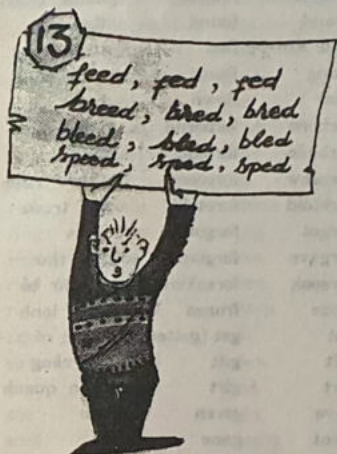 13
feed, fed, fed
breed, bred, bred
bleed, bled, bled
speed, sped, sped.